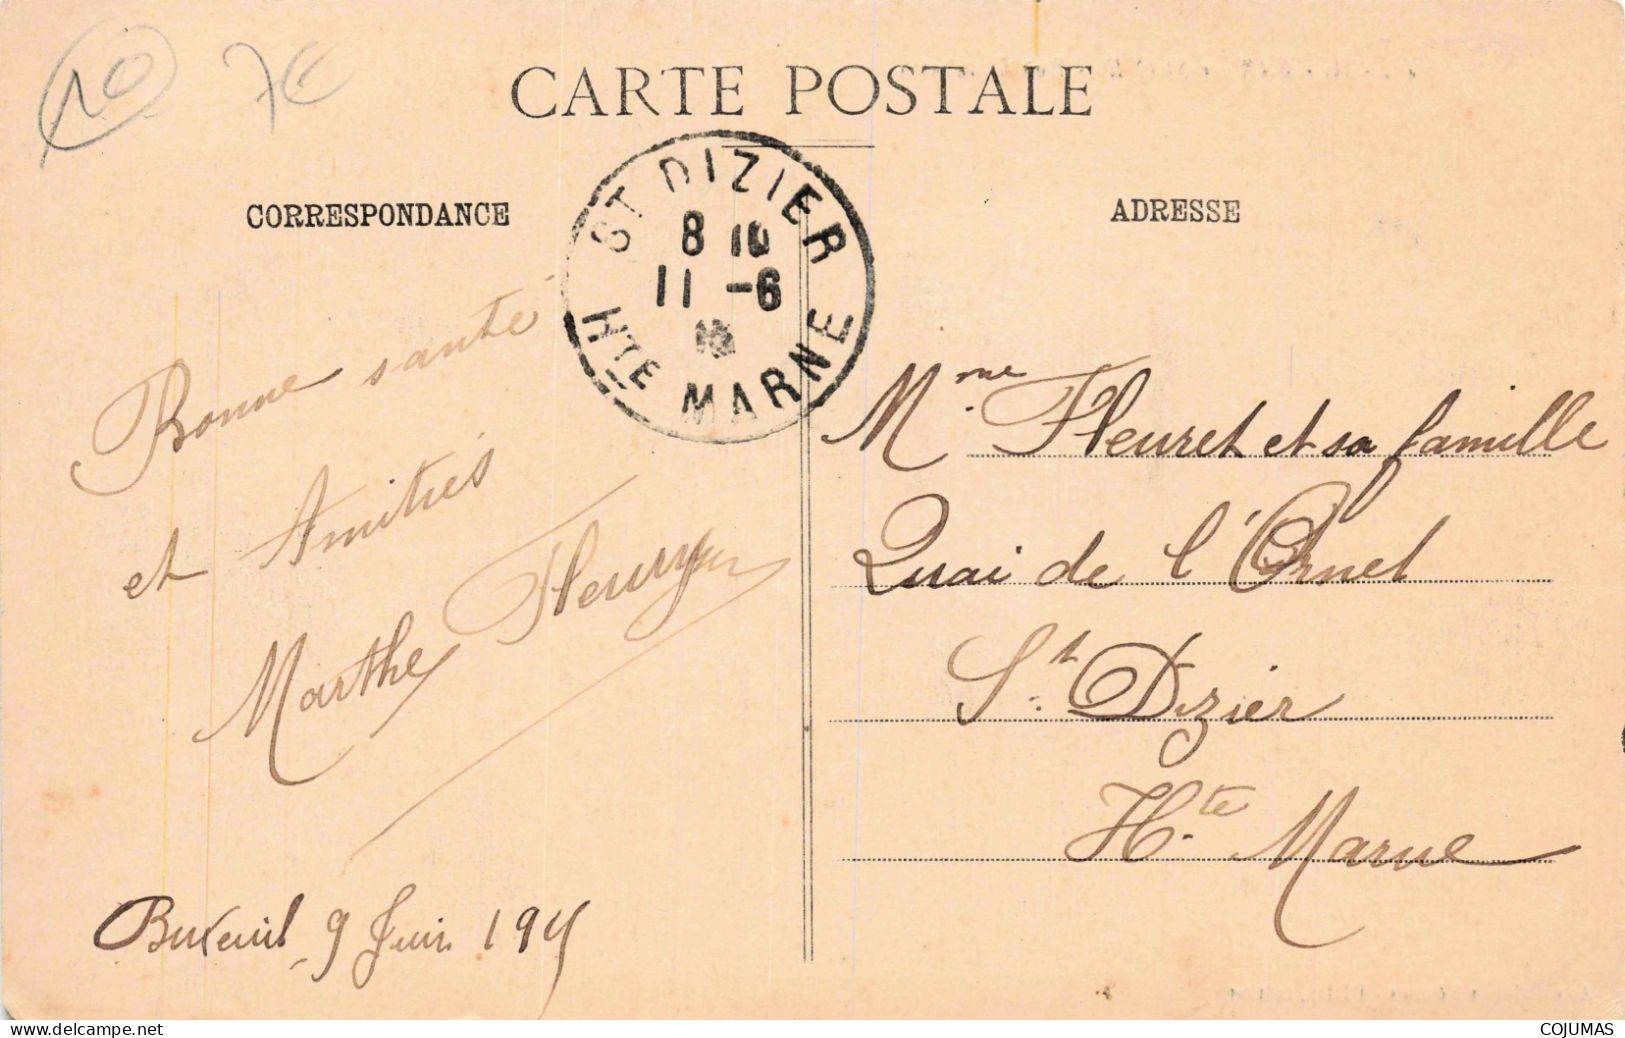 10
7€
CARTE POSTALE
CORRESPONDANCE
ADRESSE
ST DIZIER
8 10
11 -6
HTE MARNE
Bonne santé
et Amitiés
Marthe Fleury
Buxeuil 9 Juin
Mme Fleuret et sa famille
Quai de l'Ornel
St. Dizier
Hte Marne
delcampe.net
COJUMAS